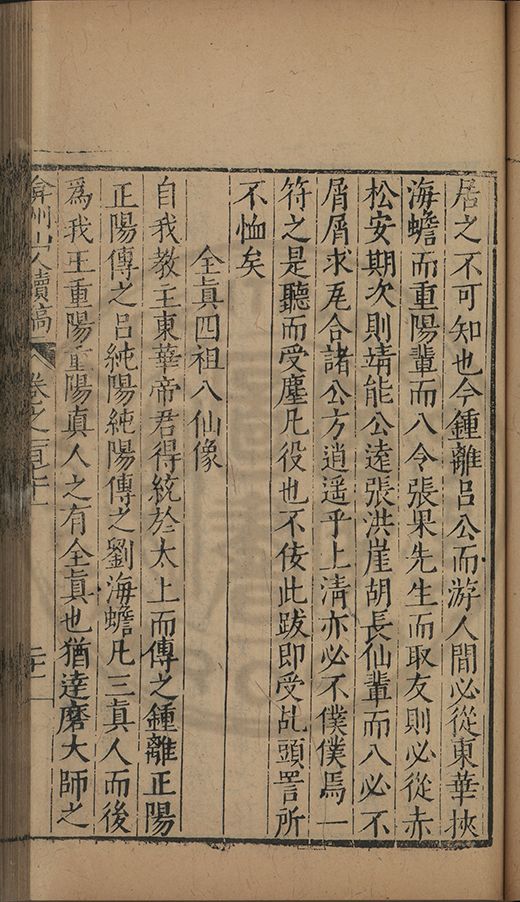 居之不可知也今鍾離呂公而游人間必從東華挾
海蟾而重陽輩而八令張果先生而取友則必從赤
松安期次則靖能公遠張洪崖胡長仙輩而八必不
屑屑求合諸公方逍遥乎上清亦必不僕僕焉一
符之是聽而受塵凡役也不佞此跋即受乩頭詈所
不恤矣
全眞四祖八仙像
自我教主東華帝君得統於太上而傳之鍾離正陽
正陽傳之呂純陽純陽傳之劉海蟾凡三真人而後
爲我王重陽重陽真人之有全眞也猶達磨大師之
弇州山人續稿 卷之一百七十一